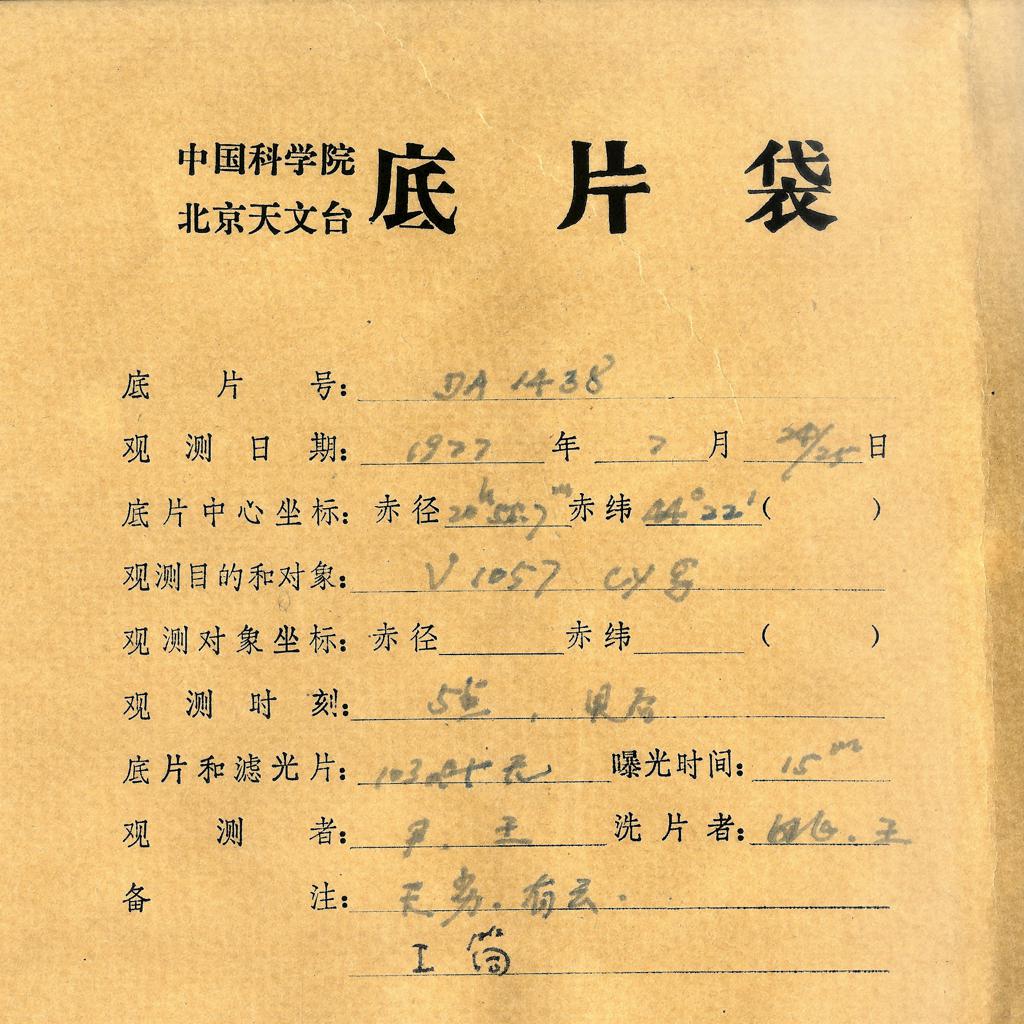 中国科学院
北京天文台
底片袋
底片号: DA 1438
观测日期: 1977 年 7 月 24/25 日
底片中心坐标: 赤径 20h 55.7m 赤纬 44° 22' ( )
观测目的和对象: V 1057 CY
观测对象坐标: 赤径 赤纬 ( )
观测时刻:
底片和滤光片: 无 曝光时间: 15m
观测者: 尹. 王 洗片者: 王
备注: 有云.
I 筒